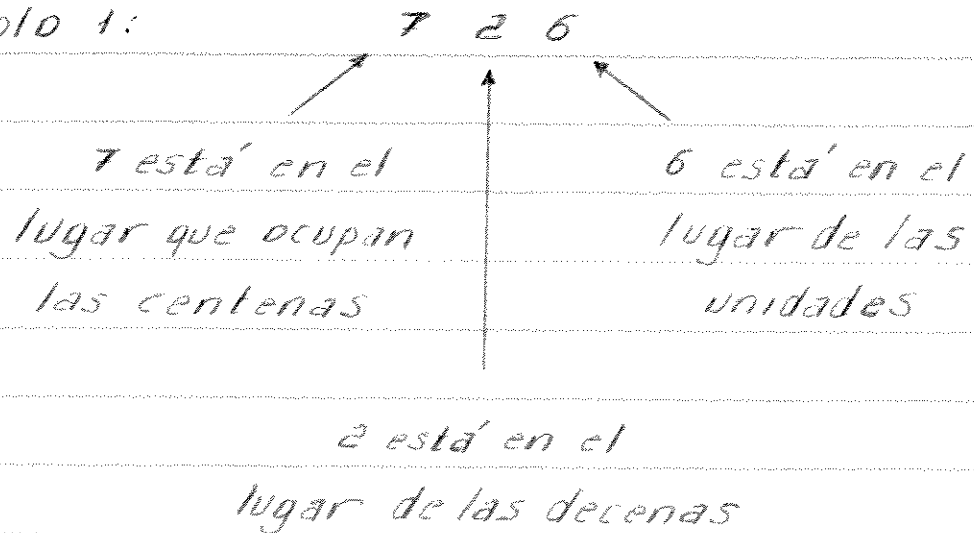 olo 1: 7 2 6
7 está en el
lugar que ocupan
las centenas
6 está en el
lugar de las
unidades
2 está en el
lugar de las decenas